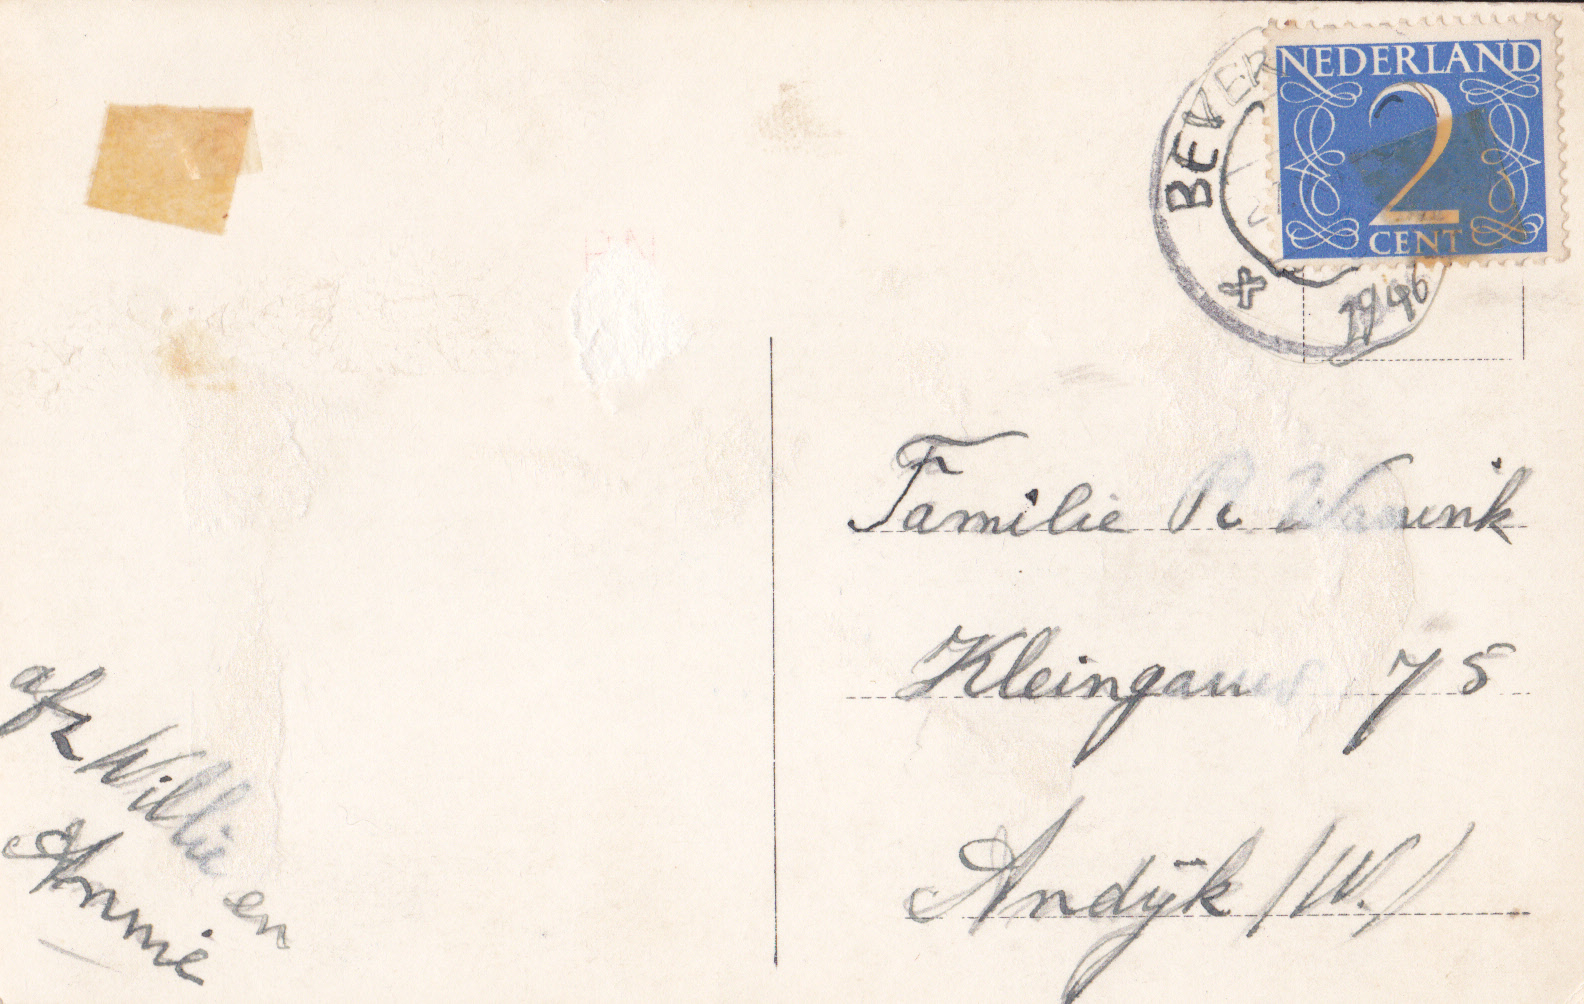 NEDERLAND
2
CENT
BEVER
1946
Familie P.
Kleingouw 75
Andijk (W.)
afz Willie en
Annie